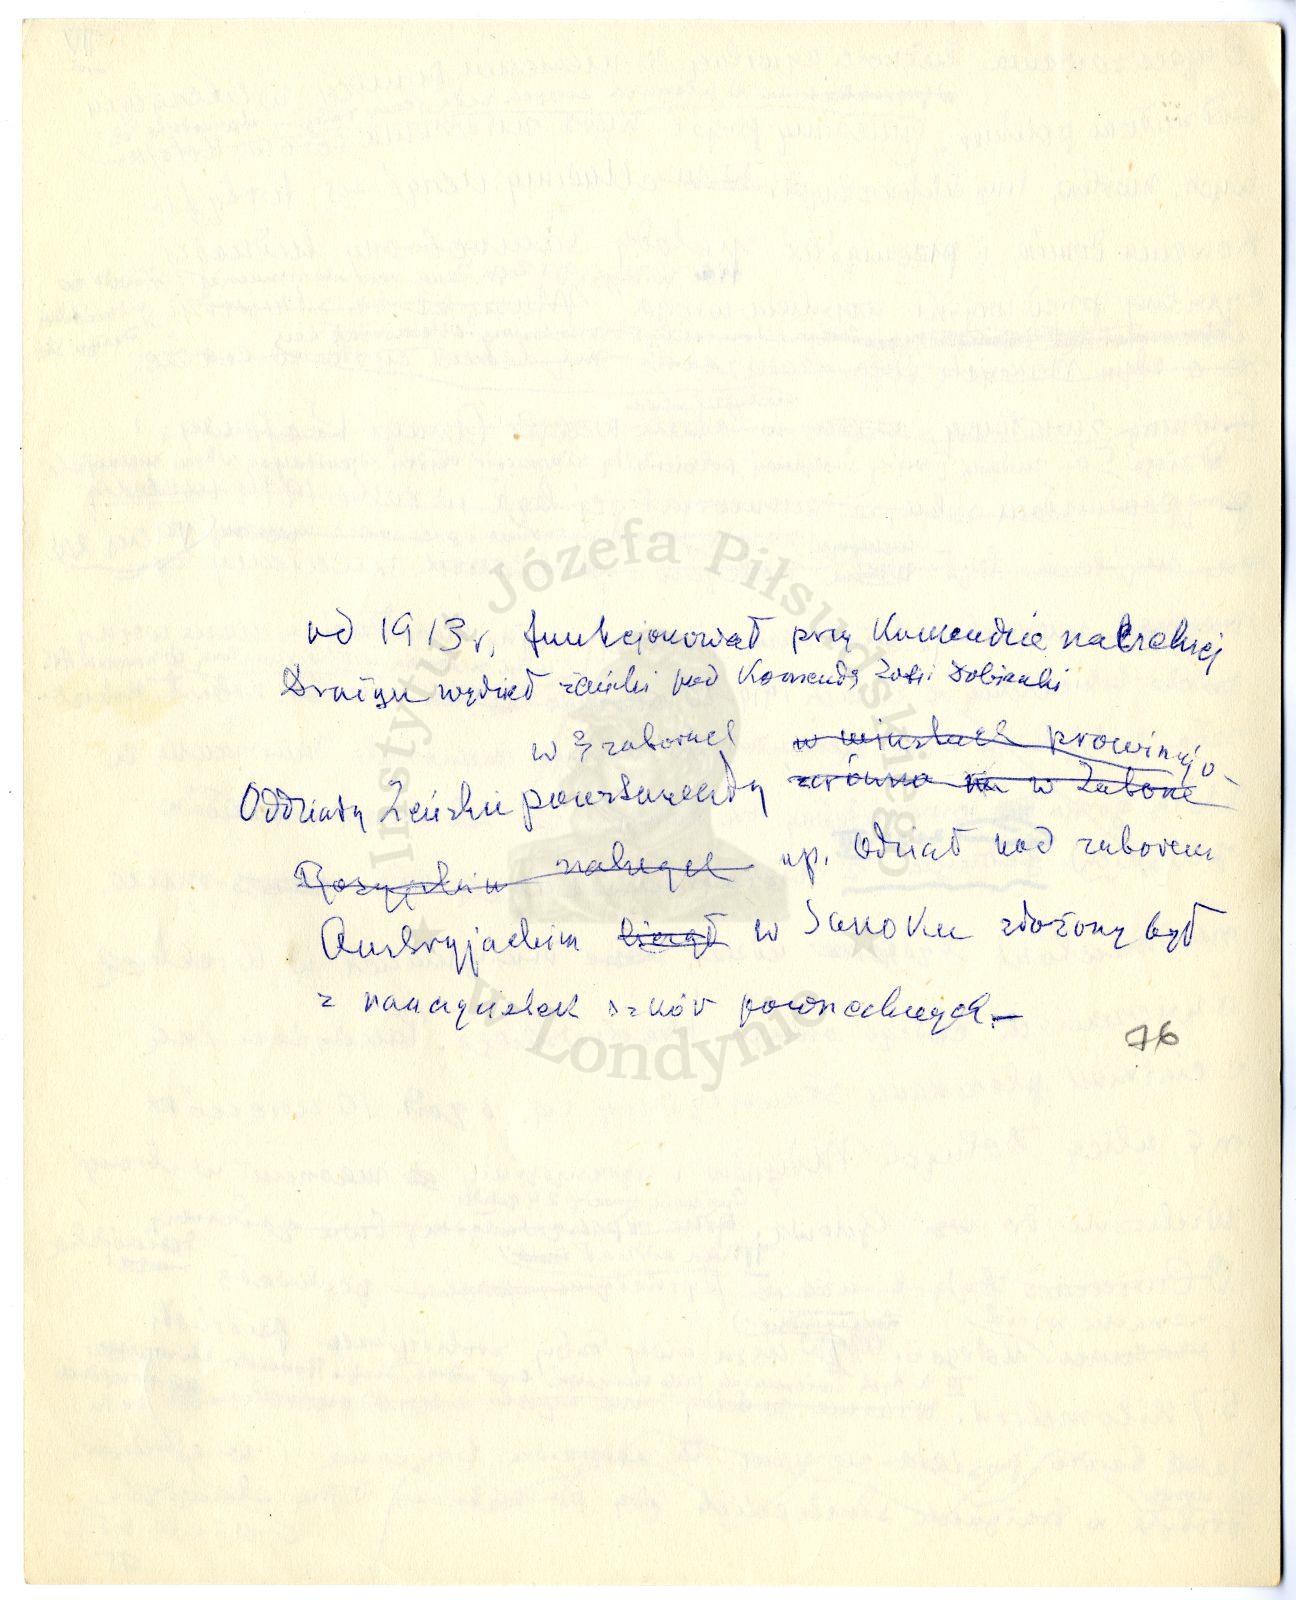 od 1913 r. funkcjonował przy Komendzie naczelnej
Drużyn wydział żeński pod Komendą Zofii
w 3 zaborach w miastach prowincjo-
Oddziały Żeńskie powstawały zarówno na w Zaborze
Rosyjskim np. Odział pod zaborem
Austryjackim w Sanoku złożony był
z nauczycielek szkół powszechnych.—
76
Instytut Józefa Piłsudskiego
w Londynie